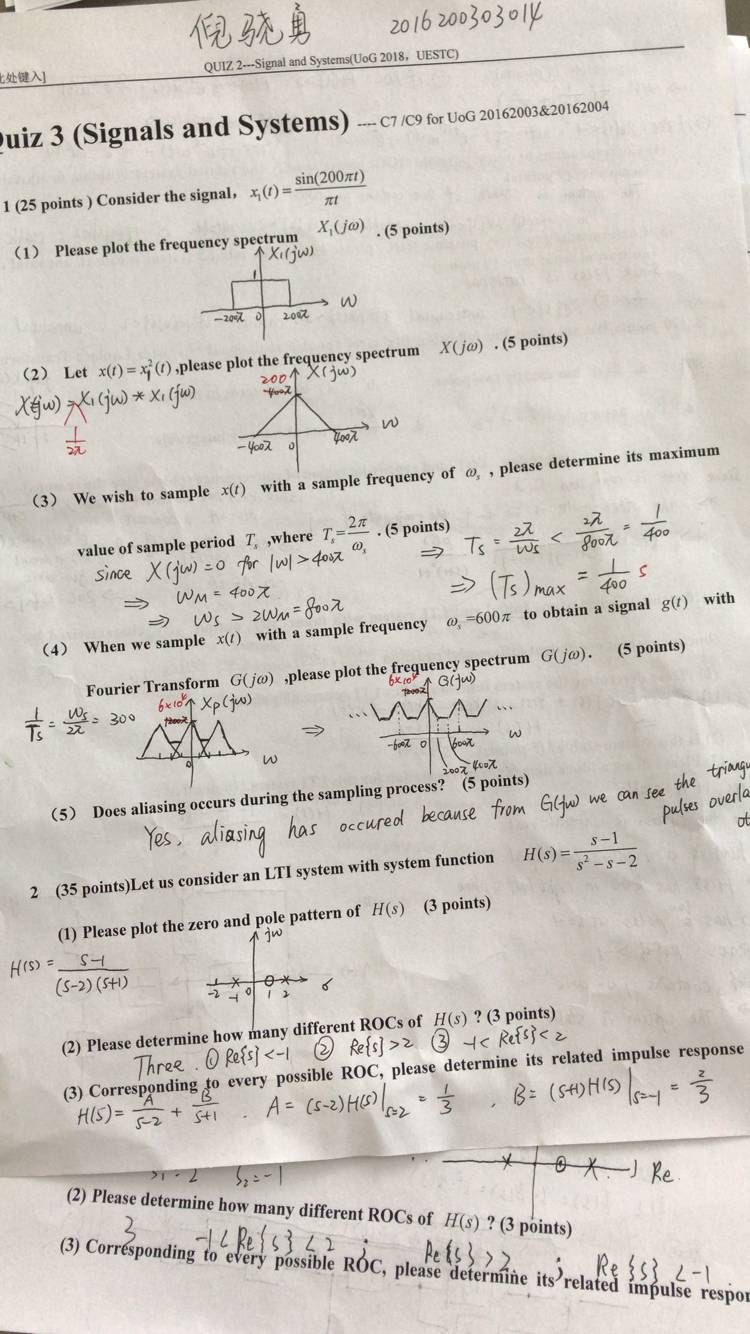 倪骁勇 2016200303014
QUIZ 2---Signal and Systems(UoG 2018，UESTC)
此处键入]
Quiz 3 (Signals and Systems) ---- C7 /C9 for UoG 20162003&20162004
1 (25 points ) Consider the signal， x₁(t) = sin(200πt)/πt
（1） Please plot the frequency spectrum X₁(jω) . (5 points)
X₁(jω)
1
-200π 0 200π ω
（2） Let x(t) = x₁²(t) ,please plot the frequency spectrum X(jω) . (5 points)
X(jω) = X₁(jω) * X₁(jω)
1/2π
200 X(jω)
400π
-400π 0 400π ω
（3） We wish to sample x(t) with a sample frequency of ωₛ , please determine its maximum
value of sample period Tₛ ,where Tₛ = 2π/ωₛ . (5 points)
since X(jω) = 0 for |ω| > 400π
⇒ ω_M = 400π
⇒ ωs > 2ω_M = 800π
⇒ Ts = 2π/ωs < 2π/800π = 1/400
⇒ (Ts)max = 1/400 s
（4） When we sample x(t) with a sample frequency ωₛ =600π to obtain a signal g(t) with
Fourier Transform G(jω) ,please plot the frequency spectrum G(jω). (5 points)
1/Ts = ωs/2π = 300
6×10⁴ Xp(jω)
0 ω
⇒
6×10⁴ G(jω)
... ...
-600π 0 600π ω
200π 400π
（5） Does aliasing occurs during the sampling process? (5 points)
Yes, aliasing has occured because from G(jω) we can see the triangu
pulses overla
ot
2 (35 points)Let us consider an LTI system with system function H(s) = s-1/s²-s-2
(1) Please plot the zero and pole pattern of H(s) (3 points)
H(s) = s-1/(s-2)(s+1)
jω
-2 -1 0 1 2 σ
(2) Please determine how many different ROCs of H(s) ? (3 points)
Three. ① Re{s}<-1 ② Re{s}>2 ③ -1< Re{s}<2
(3) Corresponding to every possible ROC, please determine its related impulse response
H(s) = A/s-2 + B/s+1 . A = (s-2)H(s)|s=2 = 1/3 , B = (s+1)H(s)|s=-1 = 2/3
S₂=-1
Re.
(2) Please determine how many different ROCs of H(s) ? (3 points)
3 -1 < Re{s} < 2 ; Re{s} > 2 ; Re{s} < -1
(3) Corresponding to every possible ROC, please determine its related impulse respon